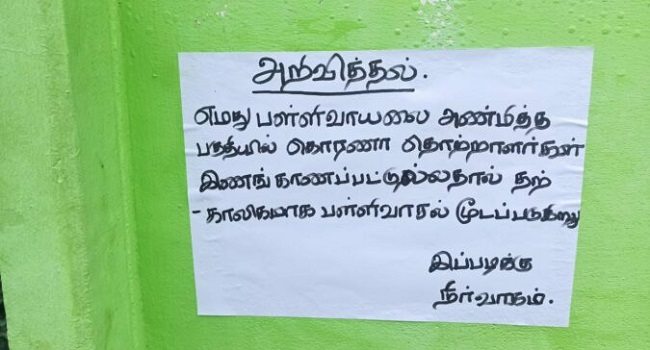 அறிவித்தல்.
எமது பள்ளிவாயலை அண்மித்த
பகுதியில் கொரணா தொற்றாளர்கள்
இணங்காணப்பட்டுள்ளதால் தற்
- காலிகமாக பள்ளிவாசல் மூடப்படுகிறது
இப்படிக்கு
நிர்வாகம்.